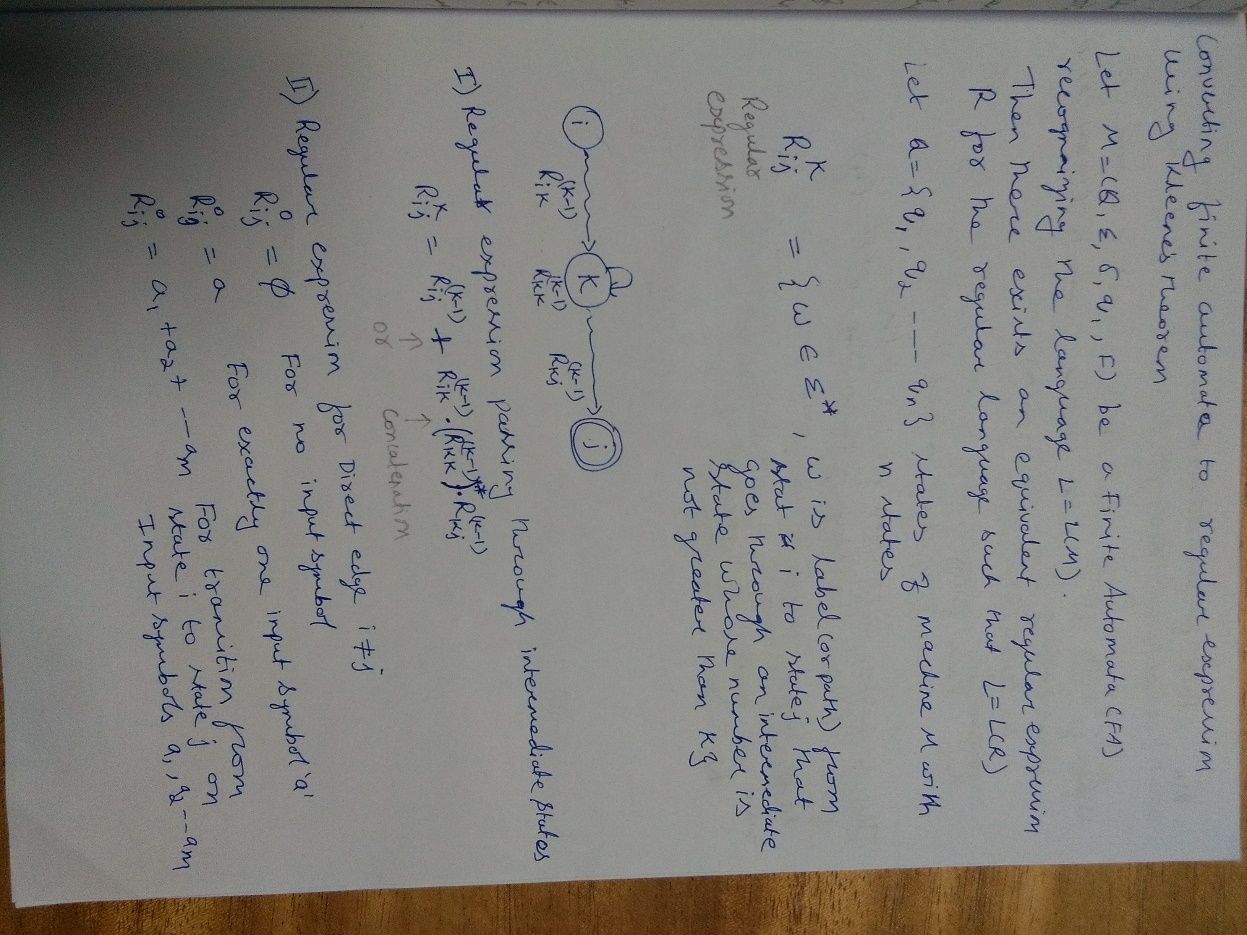 Converting finite automata to regular expression
using Kleenes theorem
Let M=(Q, Σ, δ, q₁, F) be a Finite Automata (FA)
recognizing the language L=L(M).
Then there exists an equivalent regular expression
R for the regular language such that L=L(R)
Let Q={q₁, q₂ --- qn} states of machine M with
n states
Rij^K = {w ∈ Σ*, w is label (or path) from
Regular
expression
stat i to state j that
goes through an intermediate
state whose number is
not greater than K}
i K j
Rik^(K-1) RKK^(K-1) RKj^(K-1)
I) Regular expression passing through intermediate states
Rij^K = Rij^(K-1) + RiK^(K-1) . (RKK^(K-1))* . RKj^(K-1)
↑ ↑
or Concatenation
II) Regular expression for Direct edge i≠j
Rij^0 = ϕ For no input symbol
Rij^0 = a For exactly one input symbol 'a'
Rij^0 = a₁ + a₂ + -- am For transition from
state i to state j on
Input symbols a₁, a₂ -- am